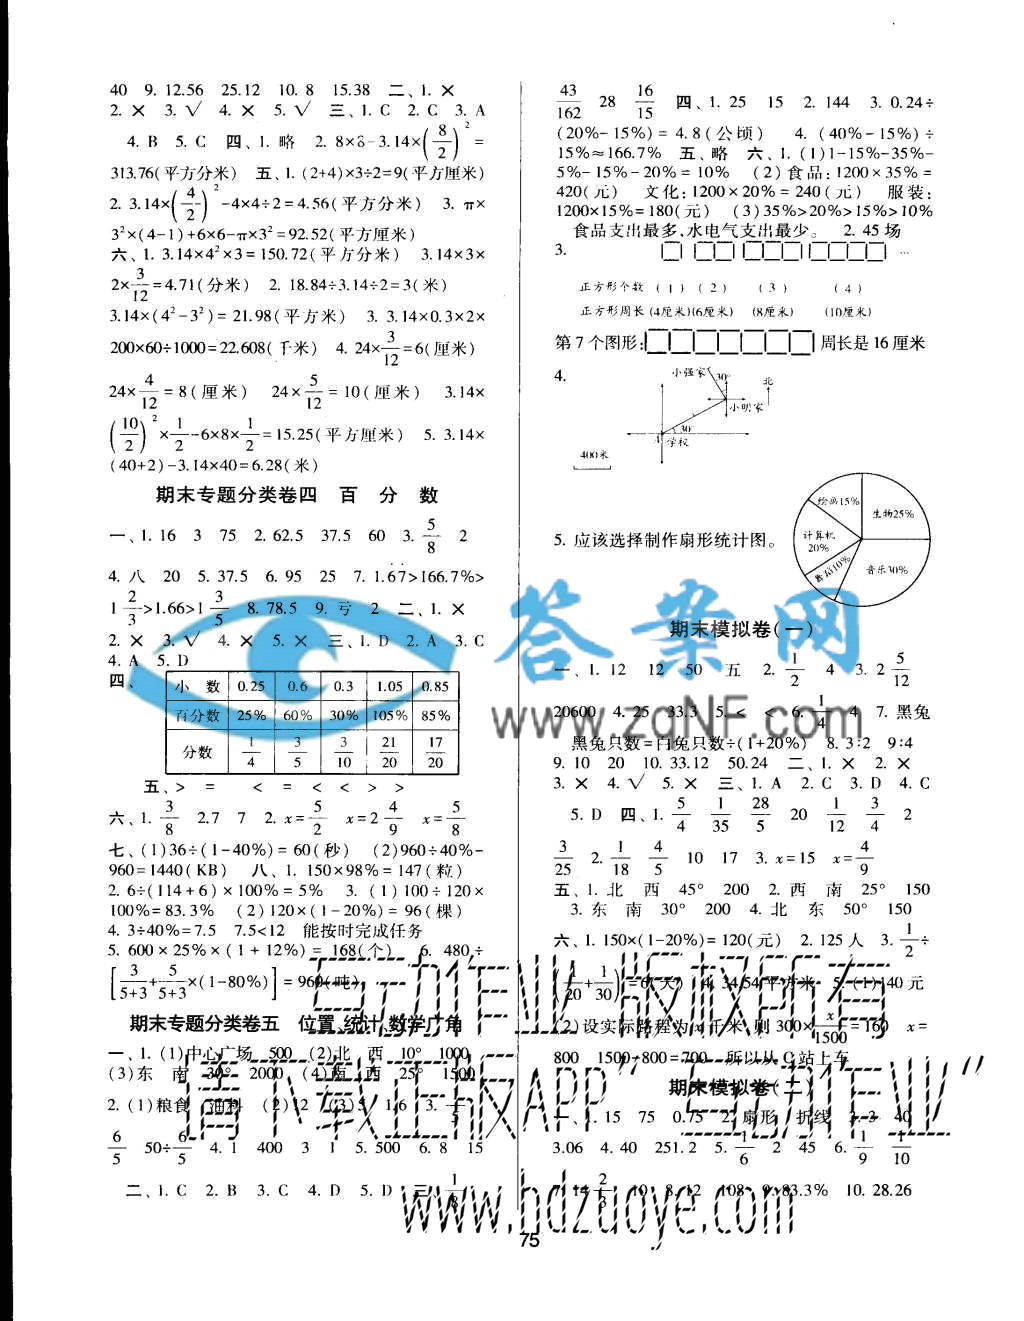 40 9. 12.56 25.12 10. 8 15.38 二、1. ×
2. × 3. √ 4. × 5. √ 三、1. C 2. C 3. A
4. B 5. C 四、1. 略 2. 8×8-3.14×(8/2)²=
313.76(平方分米) 五、1. (2+4)×3÷2=9(平方厘米)
2. 3.14×(4/2)²-4×4÷2=4.56(平方分米) 3. π×
3²×(4-1)+6×6-π×3²=92.52(平方厘米)
六、1. 3.14×4²×3=150.72(平方分米) 3.14×3×
2×3/12=4.71(分米) 2. 18.84÷3.14÷2=3(米)
3.14×(4²-3²)=21.98(平方米) 3. 3.14×0.3×2×
200×60÷1000=22.608(千米) 4. 24×3/12=6(厘米)
24×4/12=8(厘米) 24×5/12=10(厘米) 3.14×
(10/2)²×1/2-6×8×1/2=15.25(平方厘米) 5. 3.14×
(40+2)-3.14×40=6.28(米)
期末专题分类卷四 百分数
一、1. 16 3 75 2. 62.5 37.5 60 3. 5/8 2
4. 八 20 5. 37.5 6. 95 25 7. 1.6̇7̇>166.7%>
1 2/3>1.66>1 3/5 8. 78.5 9. 亏 2 二、1. ×
2. × 3. √ 4. × 5. × 三、1. D 2. A 3. C
4. A 5. D
四、
小数 0.25 0.6 0.3 1.05 0.85
百分数 25% 60% 30% 105% 85%
分数 1/4 3/5 3/10 21/20 17/20
五、> = < = < < > >
六、1. 3/8 2.7 7 2. x=5/2 x=2 4/9 x=5/8
七、(1)36÷(1-40%)=60(秒) (2)960÷40%-
960=1440(KB) 八、1. 150×98%=147(粒)
2. 6÷(114+6)×100%=5% 3. (1)100÷120×
100%=83.3% (2)120×(1-20%)=96(棵)
4. 3÷40%=7.5 7.5<12 能按时完成任务
5. 600×25%×(1+12%)=168(个) 6. 480÷
[3/(5+3)+5/(5+3)×(1-80%)]=960(吨)
期末专题分类卷五 位置、统计、数学广角
一、1. (1)中心广场 500 (2)北 西 10° 1000
(3)东 南 30° 2000 (4)南 西 25° 1500
2. (1)粮食 油料 (2)12 (3)5 1.6 3.
6/5 50÷6/5 4. 1 400 3 1 5. 500 6. 8 15
二、1. C 2. B 3. C 4. D 5. D 三、1/8
43/162 28 16/15 四、1. 25 15 2. 144 3. 0.24÷
(20%-15%)=4.8(公顷) 4. (40%-15%)÷
15%≈166.7% 五、略 六、1. (1)1-15%-35%-
5%-15%-20%=10% (2)食品:1200×35%=
420(元) 文化:1200×20%=240(元) 服装:
1200×15%=180(元) (3)35%>20%>15%>10%
食品支出最多,水电气支出最少。 2. 45场
3. …
正方形个数 (1) (2) (3) (4)
正方形周长 (4厘米)(6厘米) (8厘米) (10厘米)
第7个图形: 周长是16厘米
4.
小强家 30° 北
小明家
30°
A 学校
400米
5. 应该选择制作扇形统计图。
绘画15%
生物25%
计算机20%
10%
音乐30%
期末模拟卷(一)
一、1. 12 12 50 五 2. 1/2 4 3. 2 5/12
20600 4. 25 33.3 5. < < 6. 1/4 4 7. 黑兔
黑兔只数=白兔只数÷(1+20%) 8. 3:2 9:4
9. 10 20 10. 33.12 50.24 二、1. × 2. ×
3. × 4. √ 5. × 三、1. A 2. C 3. D 4. C
5. D 四、1. 5/4 1/35 28/5 20 1/12 3/4 2
3/25 2. 1/18 4/5 10 17 3. x=15 x=4/9
五、1. 北 西 45° 200 2. 西 南 25° 150
3. 东 南 30° 200 4. 北 东 50° 150
六、1. 150×(1-20%)=120(元) 2. 125人 3. 1/2÷
(1/20+1/30)=6(天) 4. 34.54平方米 5. (1)140元
(2)设实际路程为x千米,则300×x/1500=160 x=
800 1500-800=700 所以从C站上车
期末模拟卷(二)
一、1. 15 75 0.75 2. 扇形 折线 2. 3 40
3.06 4. 40 251.2 5. 1/6 2 45 6. 1/9 1/10
7. 14 2/3 10 8. 12 108 9. 83.3% 10. 28.26
75
答案网
www.zqNF.com
与"互动作业"版权所有
请下载正版APP"互动作业"
www.hdzuoye.com